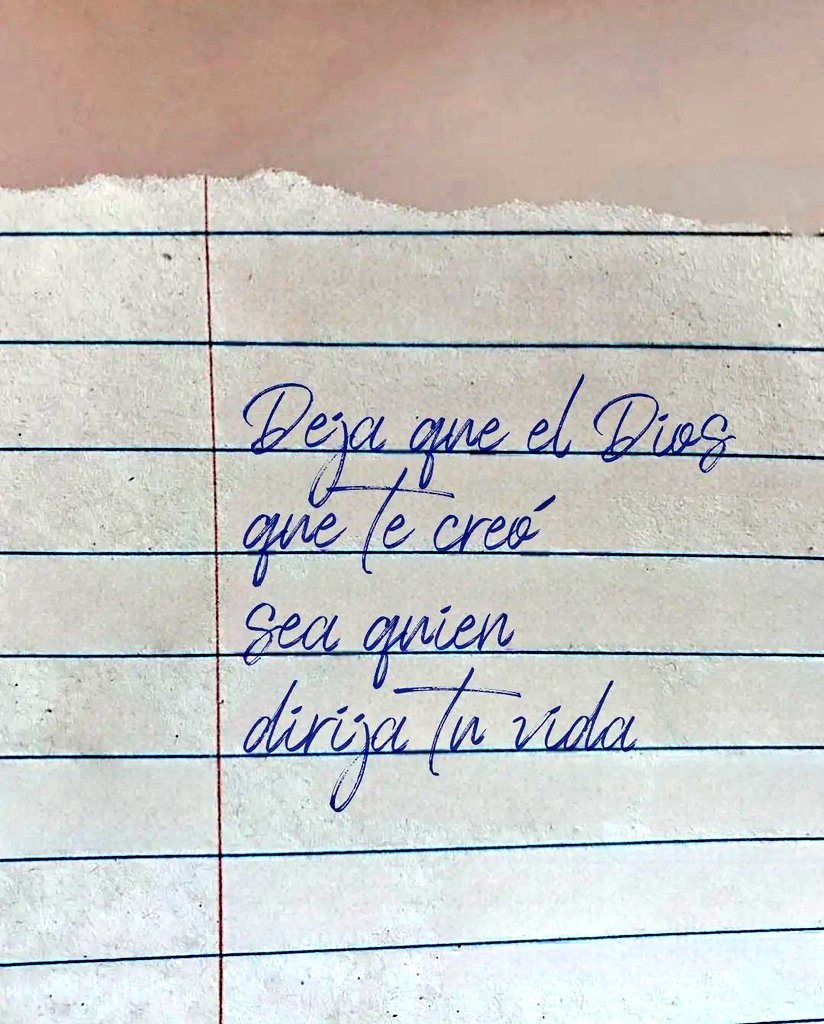 Deja que el Dios
que te creó
sea quien
dirija tu vida